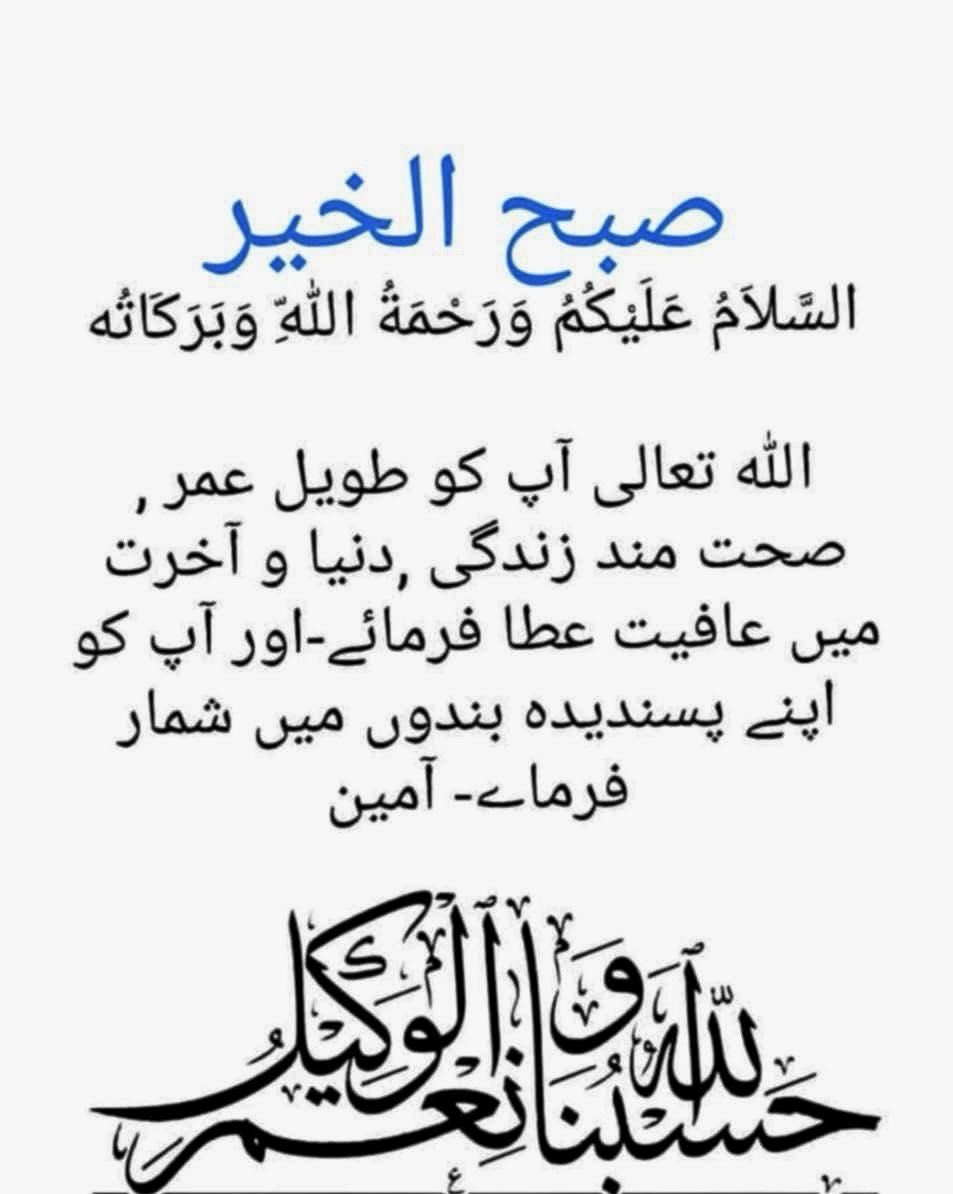 صبح الخير
السَّلاَمُ عَلَيْكُمُ وَرَحْمَةُ اللّهِ وَبَرَكَاتُه
الله تعالی آپ کو طویل عمر ,
صحت مند زندگی ,دنیا و آخرت
میں عافیت عطا فرمائے-اور آپ کو
اپنے پسندیدہ بندوں میں شمار
فرماے- آمین
حسبنا الله و نعم الوكيل